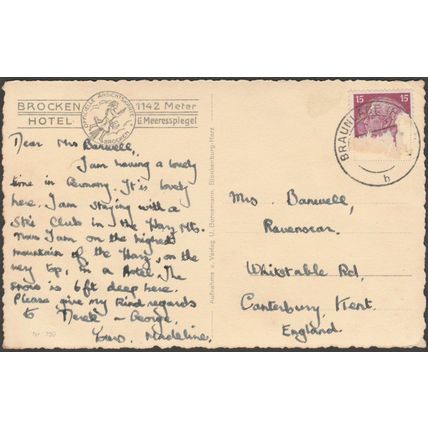 BROCKEN
HOTEL
OFFIZIELLE ANSICHTSKARTE
BROCKEN
1142 Meter
ü. Meeresspiegel
Dear Mrs Banwell,
I am having a lovely
time in Germany. It is lovely
here. I am staying with a
Ski Club in the Harz Mts.
Now I am on the highest
mountain of the Harz, on the
very top, in a hotel. The
snow is 6ft deep here.
Please give my kind regards
to Derek & George.
Yours Madeline.
Nr. 750
Aufnahme u. Verlag U. Bornemann, Blankenburg-Harz
15 15
BRAUNLAGE
b
Mrs. Banwell,
Ravenscar.
Whitstable Rd,
Canterbury, Kent.
England.